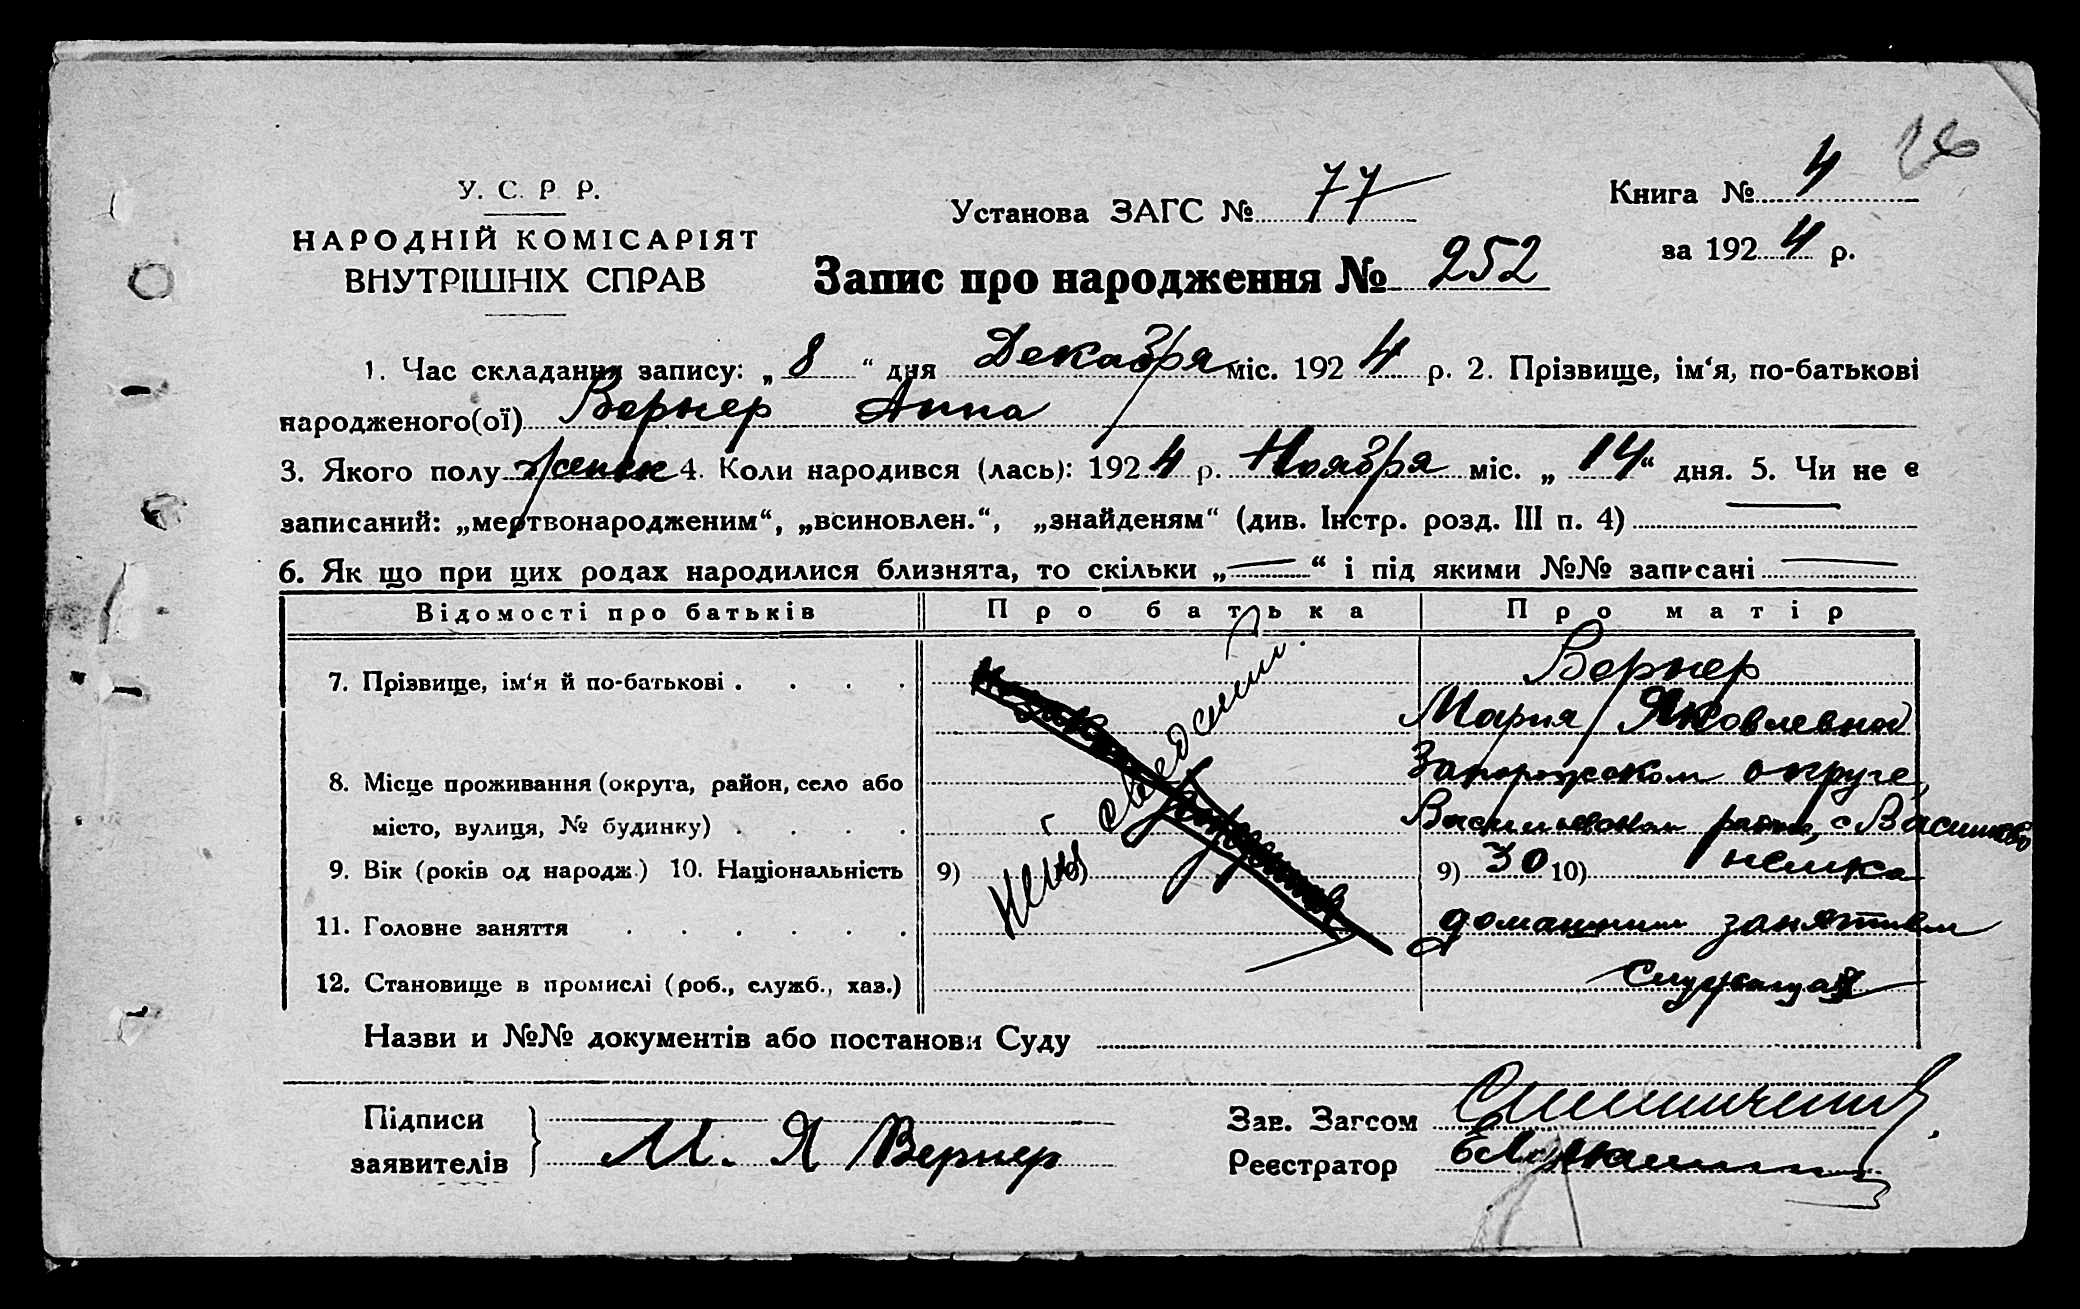 26
У. С. Р Р.
НАРОДНІЙ КОМІСАРІЯТ
ВНУТРІШНІХ СПРАВ
Установа ЗАГС № 77
Книга № 4
за 1924 р.
Запис про народження № 252
1. Час складання запису: „ 8 “ дня Декабря міс. 1924 р. 2. Прізвище, ім‘я, по-батькові
народженого(ої) Вернер Анна
3. Якого полу женск 4. Коли народився (лась): 1924 р. Ноября міс. „ 14 “ дня. 5. Чи не є
записаний: „мертвонародженим“, „всиновлен.“, „знайденям“ (див. Інстр. розд. III п. 4) —
6. Як що при цих родах народилися близнята, то скільки „ — “ і під якими №№ записані —
Відомості про батьків Про батька Про матір
7. Прізвище, ім‘я й по-батькові . . . . Вернер
Мария Яковлевна
8. Місце проживання (округа, район, село або Запорожском округе,
місто, вулиця, № будинку) . . . . Васильевском районе, с
нет сведений.
9. Вік (років од народж.) 10. Національність 9) 10) 9) 30 10) немка
11. Головне заняття . . . . . . домашним занятием
12. Становище в промислі (роб., служб., хаз.) Служащая
Назви и №№ документів або постанови Суду
Підписи
заявителів М. Я Вернер
Зав. Загсом
Реєстратор